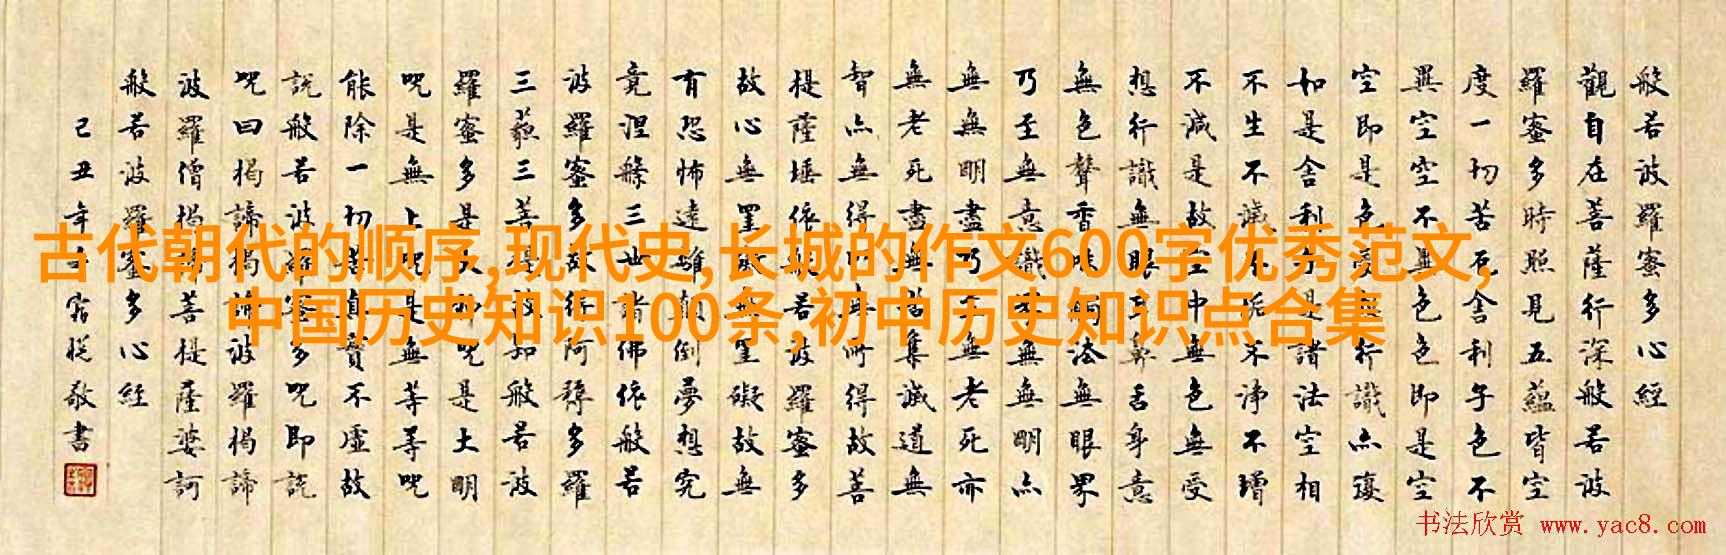 古代朝代的顺序,现代史,长城的作文600字优秀范文,
中国历史知识100条,初中历史知识点合集
般若波羅蜜多心經
觀自在菩薩行深般若波
羅蜜多時照見五蘊皆空
度一切苦厄舍利子色不
異空空不異色色即是空
空即是色受想行識亦復
如是舍利子是諸法空相
不生不滅不垢不淨不增
不減是故空中無色無受
想行識無眼耳鼻舌身意
無色聲香味觸法無眼界
乃至無意識界無無明亦
無無明盡乃至無老死亦
無老死盡無苦集滅道無
智亦無得以無所得故菩
提薩埵依般若波羅蜜多
故心無罣礙無罣礙故無
有恐怖遠離顛倒夢想究
竟涅槃三世諸佛依般若
波羅蜜多故得阿耨多羅
三藐三菩提故知般若波
羅蜜多是大神咒是大明
咒是無上咒是無等等咒
能除一切苦真實不虛故
說般若波羅蜜多咒即說
咒曰揭諦揭諦波羅揭諦
波羅僧揭諦菩提薩婆訶
般若波羅蜜多心經
己丑年敬書
书法欣赏 www.yac8.com